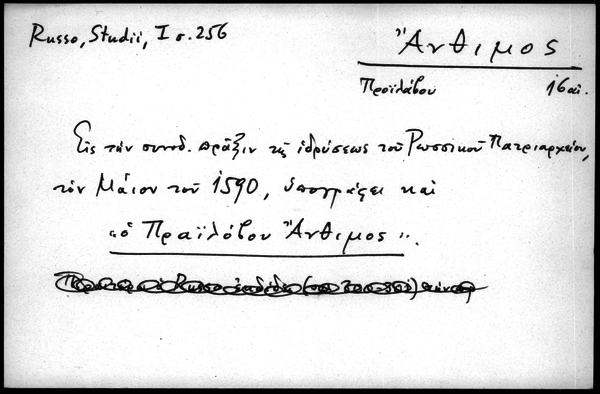 Russo, Studii, I σ. 256
Ἄνθιμος
Προϊλάβου 16 αἰ.
Εἰς τὴν συνοδ. πρᾶξιν τῆς ἱδρύσεως τοῦ Ρωσσικοῦ Πατριαρχείου,
τὸν Μάϊον τοῦ 1590, ὑπογράφει καὶ
"ὁ Πραϊλόβου Ἄνθιμος".